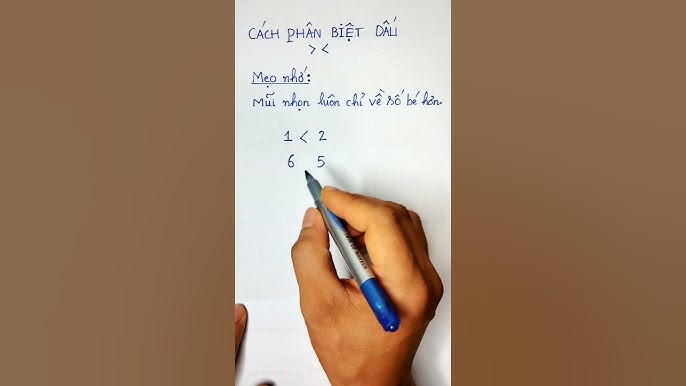 CÁCH PHÂN BIỆT DẤU
> <
Mẹo nhớ:
Mũi nhọn luôn chỉ về số bé hơn.
1 < 2
6 5